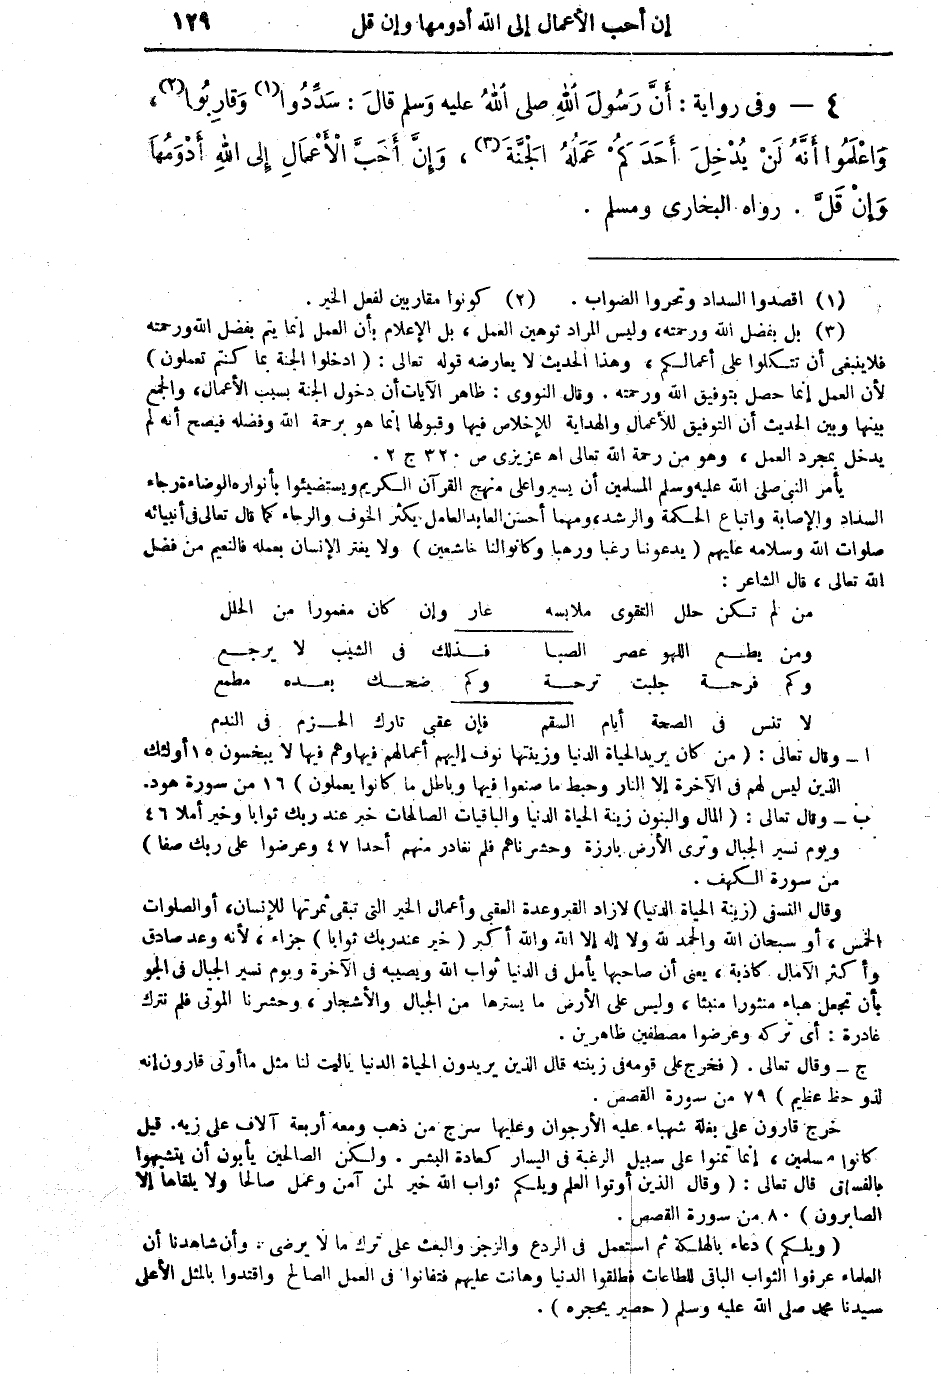 إن أحب الأعمال إلى الله أدومها وإن قل ١٢٩
٤ — وفى رواية : أَنَّ رَسُولَ اللهِ صلى اللهُ عليه وَسلم قالَ : سَدِّدُوا(١) وَقَارِبُوا(٢) ،
وَاعْلَمُوا أَنَّهُ لَنْ يُدْخِلَ أَحَدَكُمْ عَمَلُهُ الْجَنَّةَ(٣) ، وَإِنَّ أَحَبَّ الْأَعْمَالِ إِلى اللهِ أَدْوَمُهَا
وَإِنْ قَلَّ . رواه البخارى ومسلم .
(١) اقصدوا السداد وتحروا الضواب . (٢) كونوا مقاربين لفعل الخير .
(٣) بل بفضل الله ورحمته، وليس المراد توهين العمل ، بل الإعلام بأن العمل إنما يتم بفضل الله ورحمته
فلاينبغى أن تتكلوا على أعمالكم ، وهذا الحديث لا يعارضه قوله تعالى : ( ادخلوا الجنة بما كنتم تعملون )
لأن العمل إنما حصل بتوفيق الله ورحمته . وقال النووى : ظاهر الآيات أن دخول الجنة بسبب الأعمال، والجمع
بينها وبين الحديث أن التوفيق للأعمال والهداية للإخلاص فيها وقبولها إنما هو برحمة الله وفضله فيصح أنه لم
يدخل بمجرد العمل ، وهو من رحمة الله تعالى اهـ عزيزى ص ٣٢٠ ج ٢ .
يأمر النبى صلى الله عليه وسلم المسلمين أن يسيروا على منهج القرآن الكريم ويستضيئوا بأنواره الوضاءة رجاء
السداد والإصابة واتباع الحكمة والرشد، ومهما أحسن العابد العامل يكثر الخوف والرجاء كما قال تعالى فى أنبيائه
صلوات الله وسلامه عليهم ( يدعوننا رغبا ورهبا وكانوا لنا خاشعين ) ولا يغتر الإنسان بعمله فالنعيم من فضل
الله تعالى ، قال الشاعر :
من لم تكن حلل التقوى ملابسه عار وإن كان مغمورا من الحلل
ومن يطع اللهو عصر الصبا فذلك فى الشيب لا يرجع
وكم فرحة جلبت ترحة وكم ضحك بعده مطمع
لا تنس فى الصحة أيام السقم فإن عقبى تارك الحزم فى الندم
ا ـ وقال تعالى : ( من كان يريد الحياة الدنيا وزينتها نوف إليهم أعمالهم فيها وهم فيها لا يبخسون ١٥ أولئك
الذين ليس لهم فى الآخرة إلا النار وحبط ما صنعوا فيها وباطل ما كانوا يعملون ) ١٦ من سورة هود.
ب ـ وقال تعالى : ( المال والبنون زينة الحياة الدنيا والباقيات الصالحات خير عند ربك ثوابا وخير أملا ٤٦
ويوم نسير الجبال وترى الأرض بارزة وحشرناهم فلم نغادر منهم أحدا ٤٧ وعرضوا على ربك صفا )
من سورة الكهف .
وقال النسفى (زينة الحياة الدنيا) لازاد القبر وعدة العقبى وأعمال الخير التى تبقى ثمرتها للإنسان، أو الصلوات
الخمس ، أو سبحان الله والحمد لله ولا إله إلا الله والله أكبر ( خير عند ربك ثوابا ) جزاء ، لأنه وعد صادق
وأكثر الآمال كاذبة ، يعنى أن صاحبها يأمل فى الدنيا ثواب الله ويصيبه فى الآخرة ويوم نسير الجبال فى الجو
بأن تجعل هباء منثورا منبثا ، وليس على الأرض ما يسترها من الجبال والأشجار ، وحشرنا الموتى فلم نترك
غادرة : أى تركه وعرضوا مصطفين ظاهرين .
ج ـ وقال تعالى . ( فخرج على قومه فى زينته قال الذين يريدون الحياة الدنيا ياليت لنا مثل ما أوتى قارون إنه
لذو حظ عظيم ) ٧٩ من سورة القصص .
خرج قارون على بغلة شهباء عليه الأرجوان وعليها سرج من ذهب ومعه أربعة آلاف على زيه. قيل
كانوا مسلمين ، إنما تمنوا على سبيل الرغبة فى اليسار كعادة البشر . ولكن الصالحين يأبون أن يتشبهوا
بالفساق قال تعالى : ( وقال الذين أوتوا العلم ويلكم ثواب الله خير لمن آمن وعمل صالحا ولا يلقاها إلا
الصابرون ) ٨٠ من سورة القصص .
( ويلكم ) دعاء بالهلكة ثم استعمل فى الردع والزجر والبعث على ترك ما لا يرضى ، وأن شاهدنا أن
العلماء عرفوا الثواب الباقى للطاعات فطلقوا الدنيا وهانت عليهم فتفانوا فى العمل الصالح واقتدوا بالمثل الأعلى
سيدنا محمد صلى الله عليه وسلم ( حصير يحجره ) .